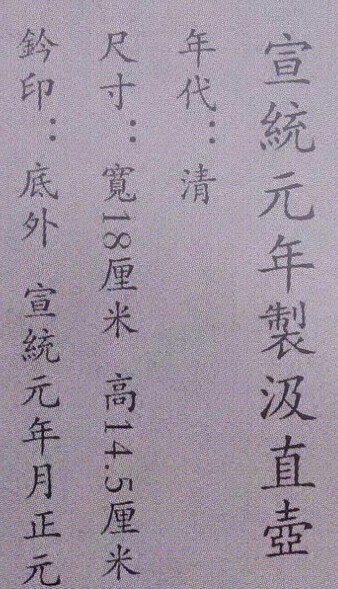 宣統元年製汲直壺
年代：清
尺寸：寬18厘米 高14.5厘米
鈐印：底外 宣統元年月正元